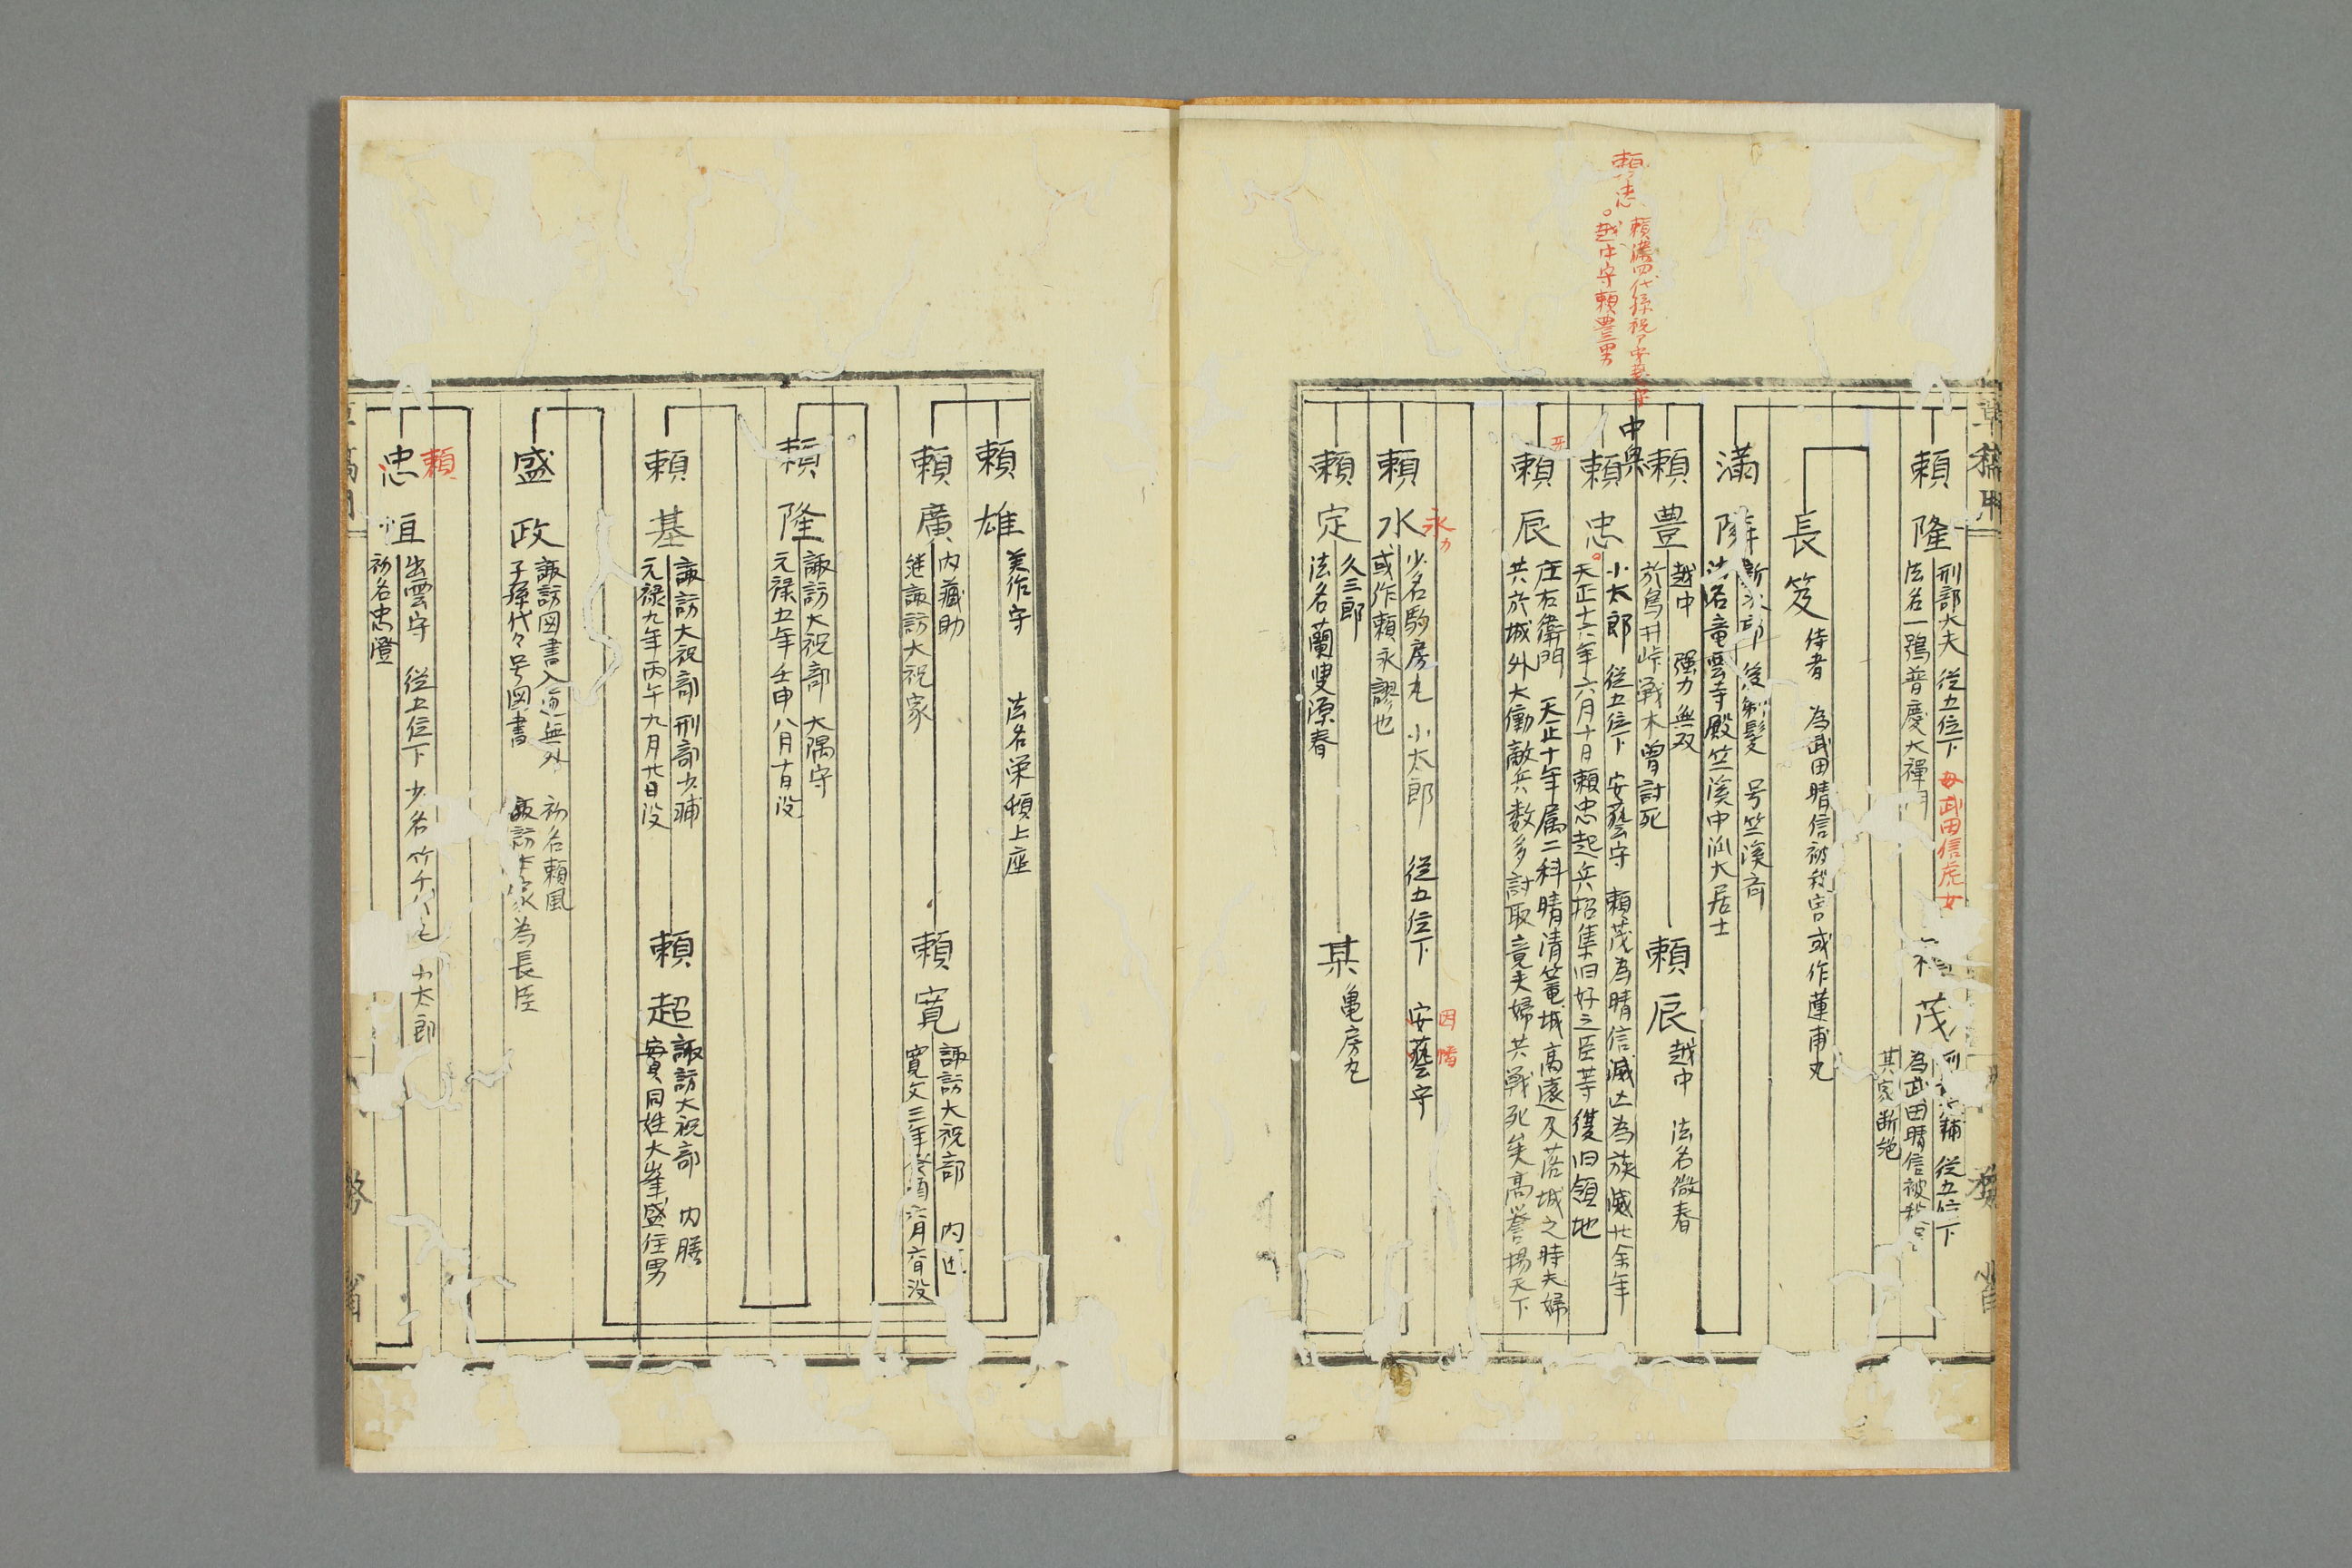 頼忠
頼満四代孫祝
越中守頼豊三男
頼隆
刑部大夫 従五位下
母武田信虎女
法名一鴞普慶大禅
茂
為武田晴信被
其家断絶
長笈
侍者 為武田晴信被殺害或作蓮甫丸
満隣
後剃髪 号竺溪斎
法名竜雲寺殿竺溪中派大居士
中興
頼豊
越中 強力無双
於鳥井峠戦木曽討死
頼辰
越中 法名微春
頼忠
小太郎 従五位下 安藝守 頼茂為晴信滅亡為族滅廿余年
天正十六年六月十日頼忠起兵招集旧好之臣等復旧領地
頼辰
庄右衛門 天正十年属二科晴清篭城高遠及落城之時夫婦
共於城外大働敵兵数多討取竟夫婦共戦死矣高誉揚天下
頼水
永カ
少名駒房丸 小太郎 従五位下 安藝守
因幡
或作頼永謬也
頼定
久三郎
法名蘭叟源春
某
亀房丸
頼雄
美作守 法名栄頓上座
頼廣
内蔵助
継諏訪大祝家
頼寛
諏訪大祝部 内匠
寛文三年癸酉六月
没
頼隆
諏訪大祝部 大隅守
元禄五年壬申八月十日没
頼基
諏訪大祝部刑部少輔
元禄九年丙午九月廿日没
頼超
諏訪大祝部 内膳
實同姓大峯盛住男
盛政
諏訪図書入道無外 初名頼風
子孫代々号図書
為長臣
頼
忠恒
出雲守 従五位下 少名竹千代 小太郎
初名忠澄